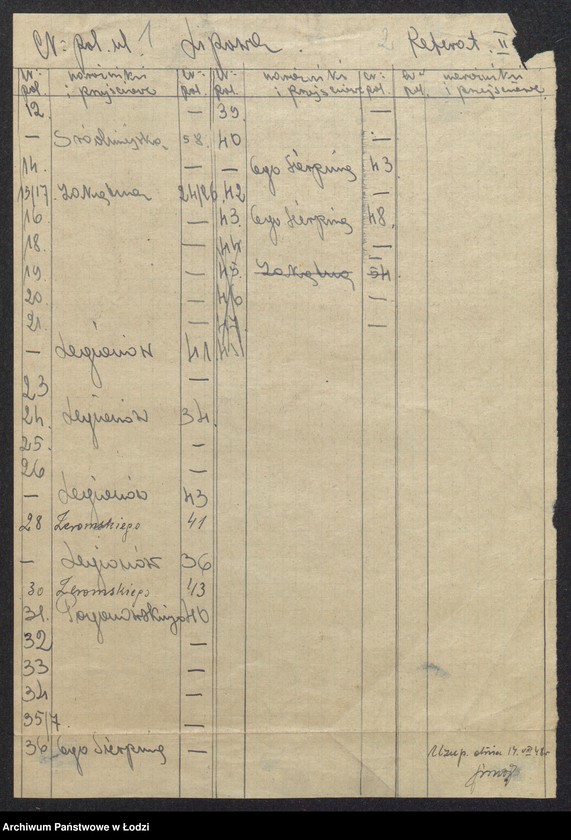 Nr: pol. ul. 1 Lipowa. 2 Referat. II
Nr: pol. narożniki i przejściowe Nr: pol. Nr: pol. narożniki i przejściowe Nr: pol. Nr pol. narożniki i przejściowe
12 — 39 —
— Śródmiejska 58. 40 —
14. — — 6go Sierpnia 43
15/17. Zakątna 24/26 42 —
16. — 43. 6go Sierpnia 48.
18. — 44 —
19. — 45. Zakątna 54
20 — 46 —
21. — 47 —
— Legionów 41
23 —
24. Legionów 34.
25. —
26 —
— Legionów 43
28 Żeromskiego 41
— Legionów 36
30 Żeromskiego 43
31. Pogonowskiego 40
32 —
33 —
34 —
35/7. —
36 6go Sierpnia —
Uzup. dnia 14. VIII 48r
Archiwum Państwowe w Łodzi